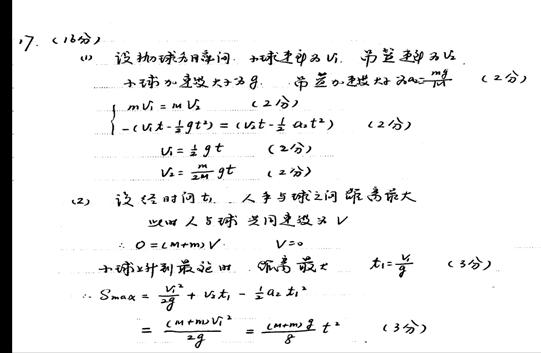 17. (16分)
(1) 设抛球后瞬间 小球速率为V₁ 吊篮速率为V₂
小球加速度大小为g. 吊篮加速度大小为a₂=mg/M (2分)
mV₁=MV₂ (2分)
-(V₁t-½gt²)=(V₂t-½a₂t²) (2分)
V₁=½gt (2分)
V₂=m/2M gt (2分)
(2) 设经时间t₁ 人手与球之间距离最大
此时人与球共同速度为V
∴ 0=(M+m)V V=0
小球上升到最高时 距离最大 t₁=V₁/g (3分)
∴ Smax = V₁²/2g + V₂t₁ - ½a₂t₁²
= (M+m)V₁²/2g = (M+m)g/8 t² (3分)